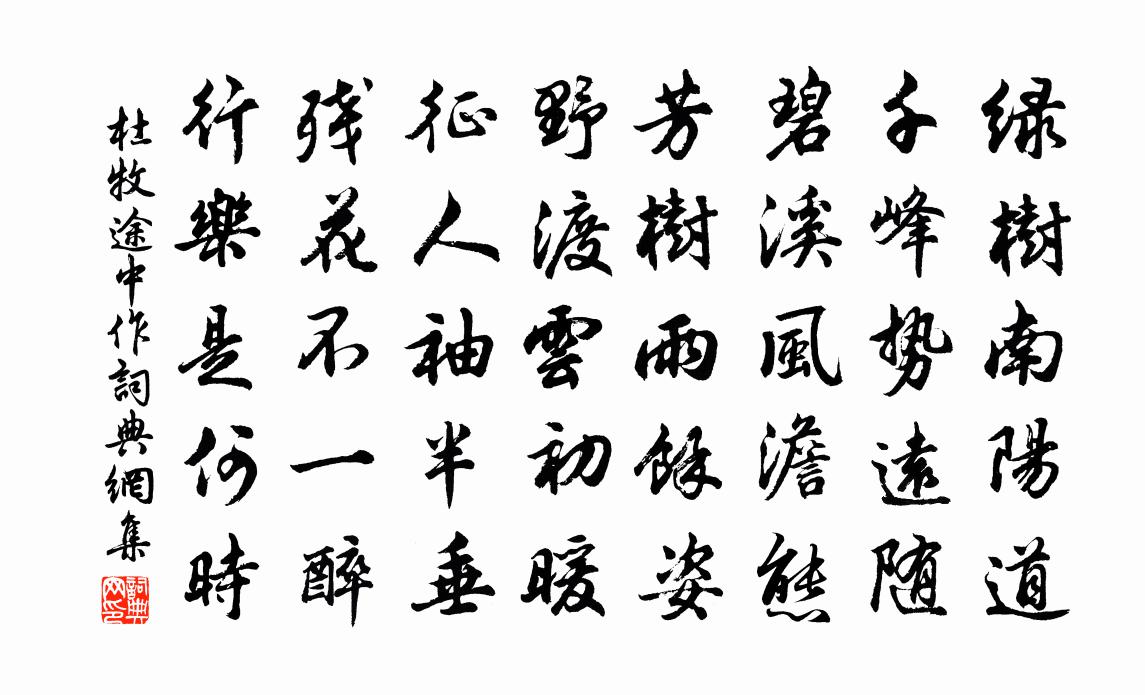 绿樹南陽道
千峰勢遠随
碧溪風澹態
芳樹雨餘姿
野渡雲初暖
征人袖半垂
残花不一醉
行樂是何時
杜牧途中作詞典網集
詞典网印